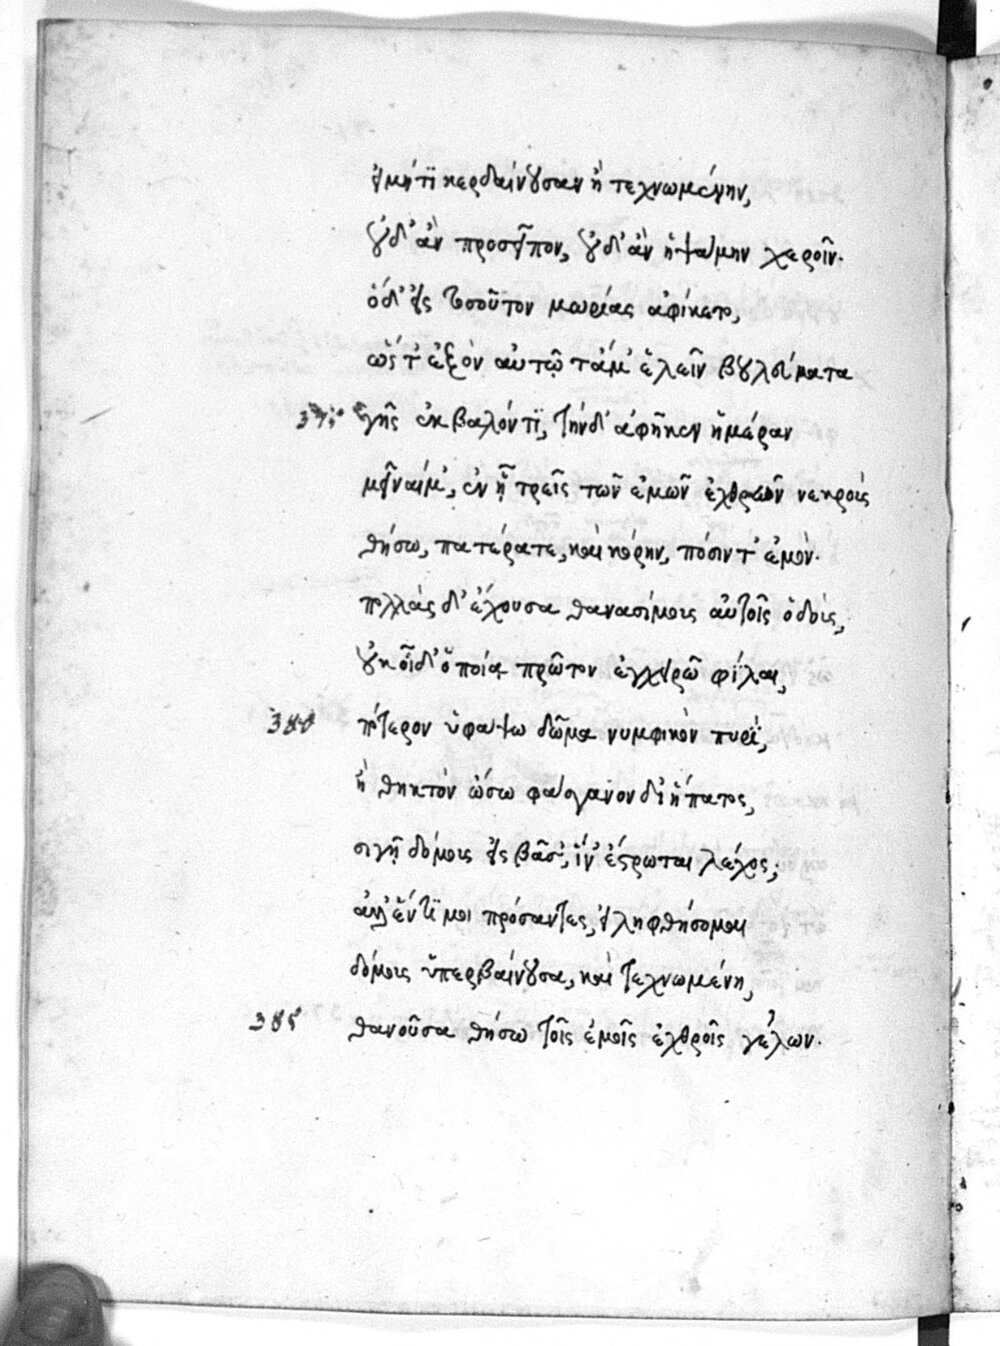 εἰ μή τι κερδαίνουσαν ἢ τεχνωμένην,
οὐδ' ἂν προσεῖπον, οὐδ' ἂν ἡψάμην χεροῖν.
ὁ δ' εἰς τοσοῦτον μωρίας ἀφίκετο,
ὥστ' ἐξὸν αὐτῷ τἄμ' ἑλεῖν βουλεύματα
375 γῆς ἐκβαλόντι, τήνδ' ἀφῆκεν ἡμέραν
μεῖναί μ', ἐν ᾗ τρεῖς τῶν ἐμῶν ἐχθρῶν νεκροὺς
θήσω, πατέρα τε, καὶ κόρην, πόσιν τ' ἐμόν.
πολλὰς δ' ἔχουσα θανασίμους αὐτοῖς ὁδοὺς,
οὐκ οἶδ' ὁποίᾳ πρῶτον ἐγχειρῶ φίλαι,
380 πότερον ὑφάψω δῶμα νυμφικὸν πυρὶ,
ἢ θηκτὸν ὤσω φάσγανον δι' ἥπατος,
σιγῇ δόμους εἰσβᾶσ', ἵν' ἔστρωται λέχος;
ἀλλ' ἕν τί μοι πρόσαντες, εἰ ληφθήσομαι
δόμους ὑπερβαίνουσα, καὶ τεχνωμένη,
385 θανοῦσα θήσω τοῖς ἐμοῖς ἐχθροῖς γέλων.